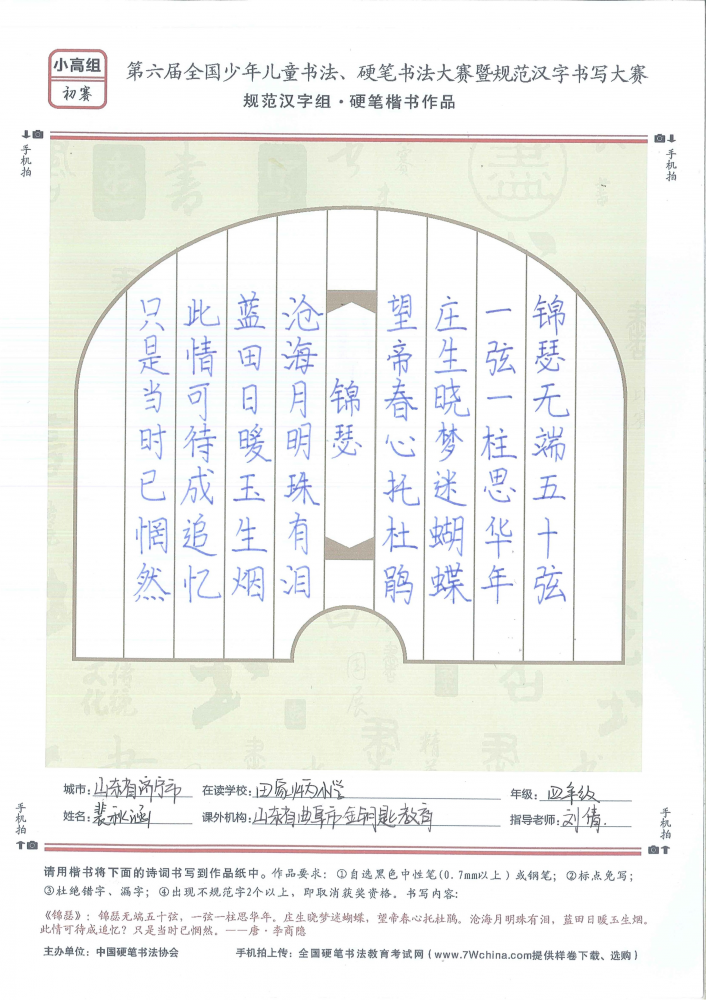 小高组
初赛
第六届全国少年儿童书法、硬笔书法大赛暨规范汉字书写大赛
规范汉字组·硬笔楷书作品
手机拍
手机拍
锦瑟无端五十弦
一弦一柱思华年
庄生晓梦迷蝴蝶
望帝春心托杜鹃
锦瑟
沧海月明珠有泪
蓝田日暖玉生烟
此情可待成追忆
只是当时已惘然
城市：山东省济宁市 在读学校：田家炳小学 年级：四年级
姓名：裴秋涵 课外机构：山东省曲阜市金钥匙教育 指导老师：刘倩.
手机拍
手机拍
请用楷书将下面的诗词书写到作品纸中。作品要求：①自选黑色中性笔(0.7mm以上)或钢笔；②标点免写；
③杜绝错字、漏字；④出现不规范字2个以上，即取消获奖资格。书写内容：
《锦瑟》：锦瑟无端五十弦，一弦一柱思华年。庄生晓梦迷蝴蝶，望帝春心托杜鹃。沧海月明珠有泪，蓝田日暖玉生烟。
此情可待成追忆？只是当时已惘然。——唐·李商隐
主办单位：中国硬笔书法协会 手机拍上传：全国硬笔书法教育考试网（www.7Wchina.com提供样卷下载、选购）